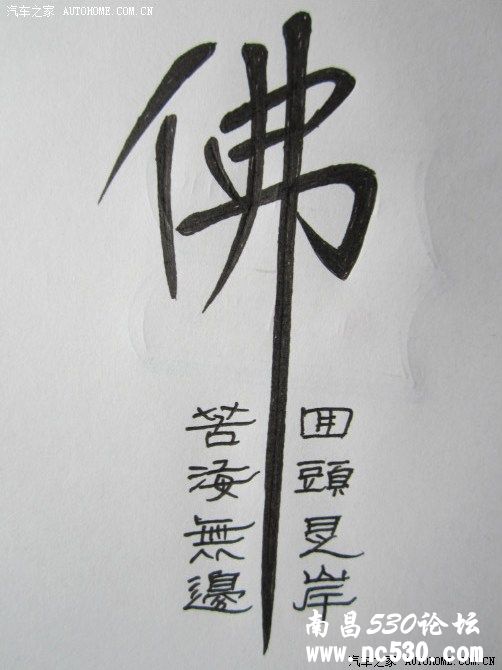 汽车之家 AUTOHOME.COM.CN
佛
苦海無邊
囬頭見岸
南昌530论坛
www.nc530.com
汽车之家 AUTOHOME.COM.CN